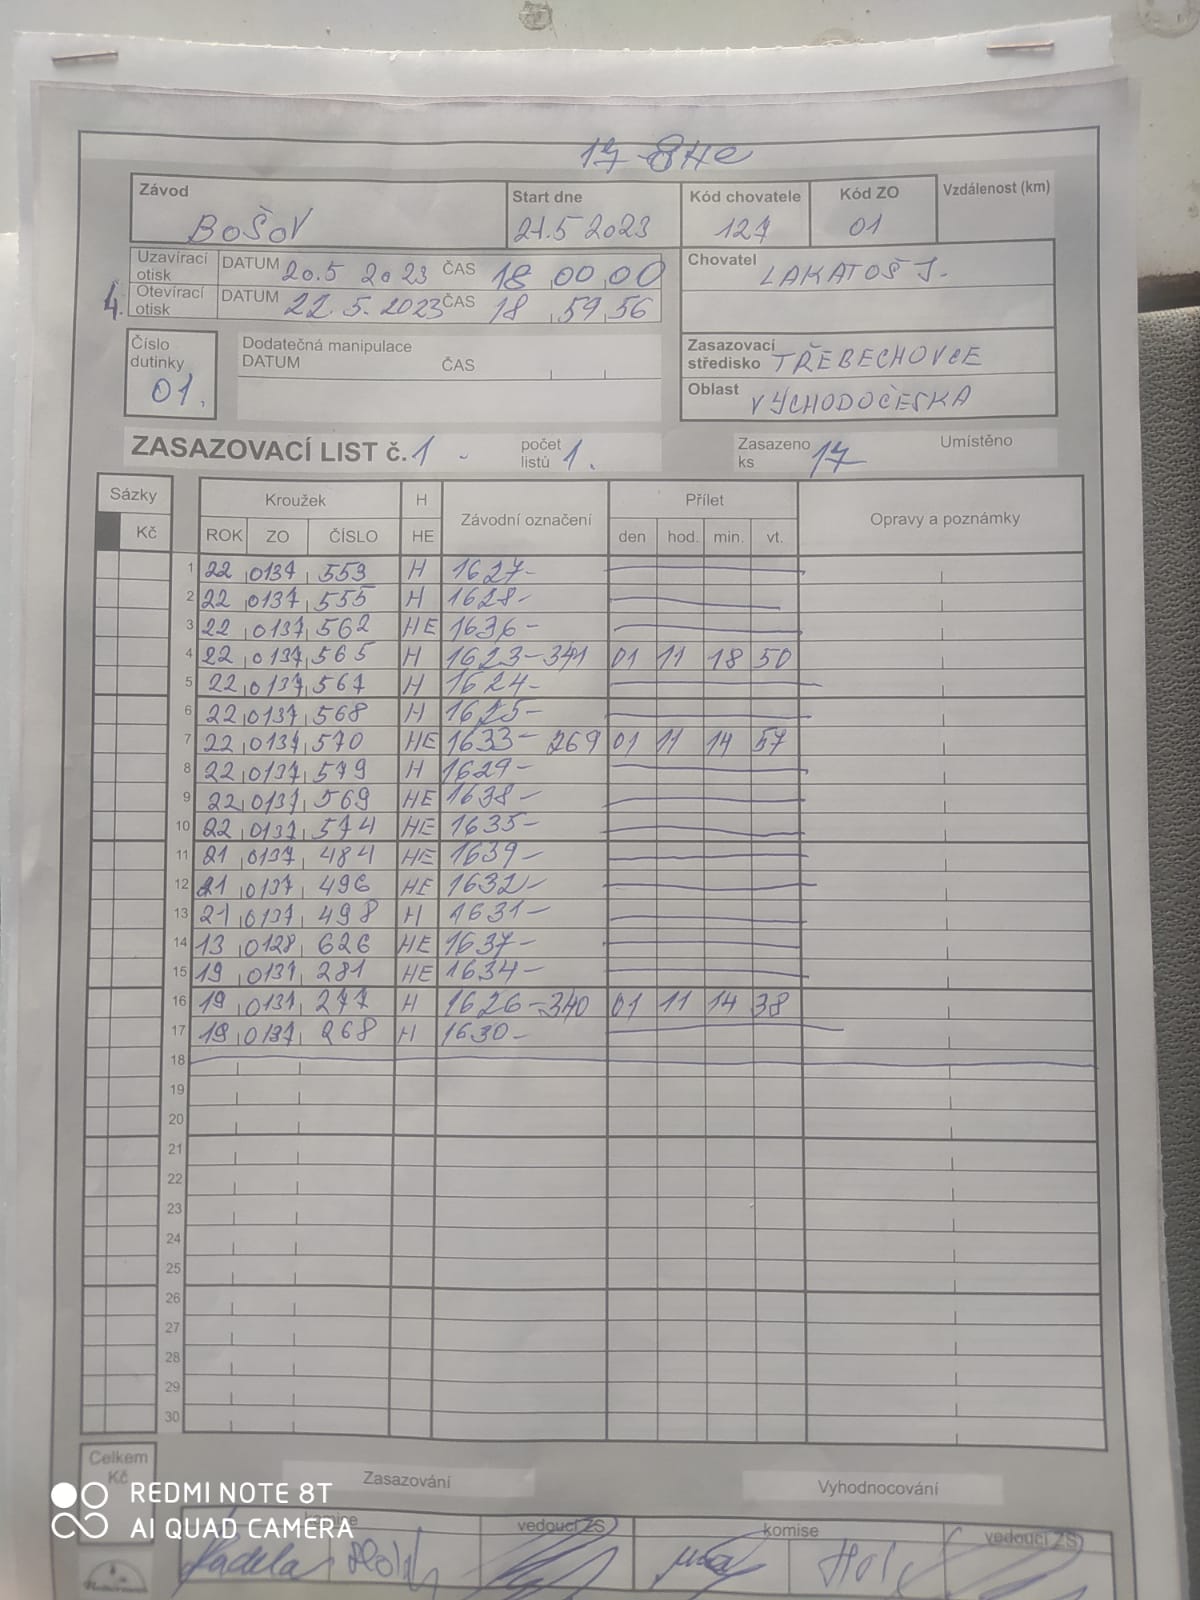 17 - 8HE
Závod Start dne Kód chovatele Kód ZO Vzdálenost (km)
BOŠOV 21.5 2023 127 01
Uzavírací otisk DATUM 20.5 2023 ČAS 18 00,00
4. Otevírací otisk DATUM 22.5.2023 ČAS 18 59,56
Chovatel LAKATOŠ J.
Číslo dutinky 01.
Dodatečná manipulace
DATUM ČAS
Zasazovací středisko TŘEBECHOVCE
Oblast VÝCHODOČESKÁ
ZASAZOVACÍ LIST č. 1 - počet listů 1. Zasazeno ks 17 Umístěno
Sázky Kroužek H Závodní označení Přílet Opravy a poznámky
Kč ROK ZO ČÍSLO HE den hod. min. vt.
1 22 0137 553 H 1627-
2 22 0137 555 H 1628-
3 22 0137 562 HE 1636-
4 22 0137 565 H 1623-341 01 11 18 50
5 22 0137 567 H 1624-
6 22 0137 568 H 1625-
7 22 0137 570 HE 1633- 269 01 11 14 57
8 22 0137 579 H 1629-
9 22 0137 569 HE 1638-
10 22 0137 574 HE 1635-
11 21 0137 484 HE 1639-
12 21 0137 496 HE 1632-
13 21 0137 498 H 1631-
14 13 0128 626 HE 1637-
15 19 0137 281 HE 1634-
16 19 0137 277 H 1626-340 01 11 14 38
17 19 0137 268 H 1630-
18
19
20
21
22
23
24
25
26
27
28
29
30
Celkem Kč
Zasazování Vyhodnocování
komise vedoucí ZS komise vedoucí ZS
REDMI NOTE 8T
AI QUAD CAMERA